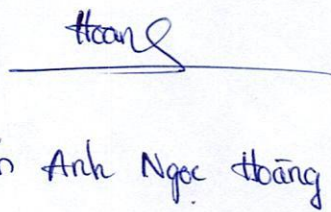 Hoang
Anh Ngọc Hoàng